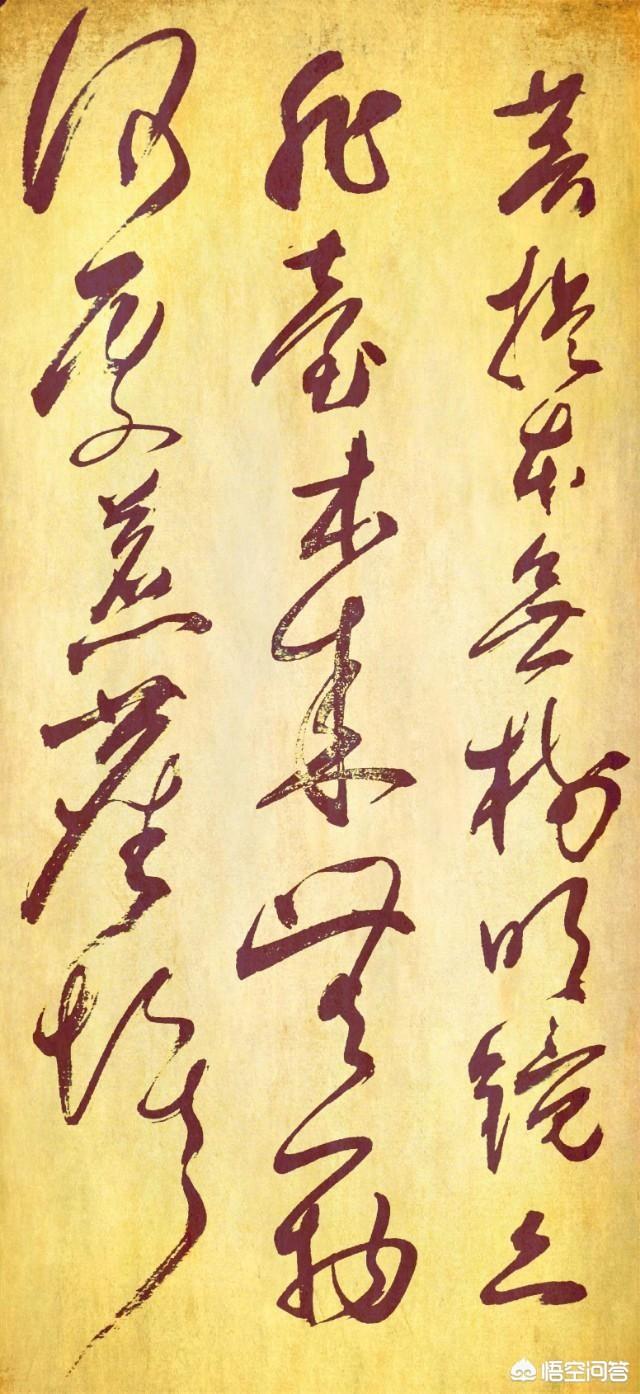 菩提本無樹明鏡亦
非臺本來無一物
何處惹塵埃
悟空问答